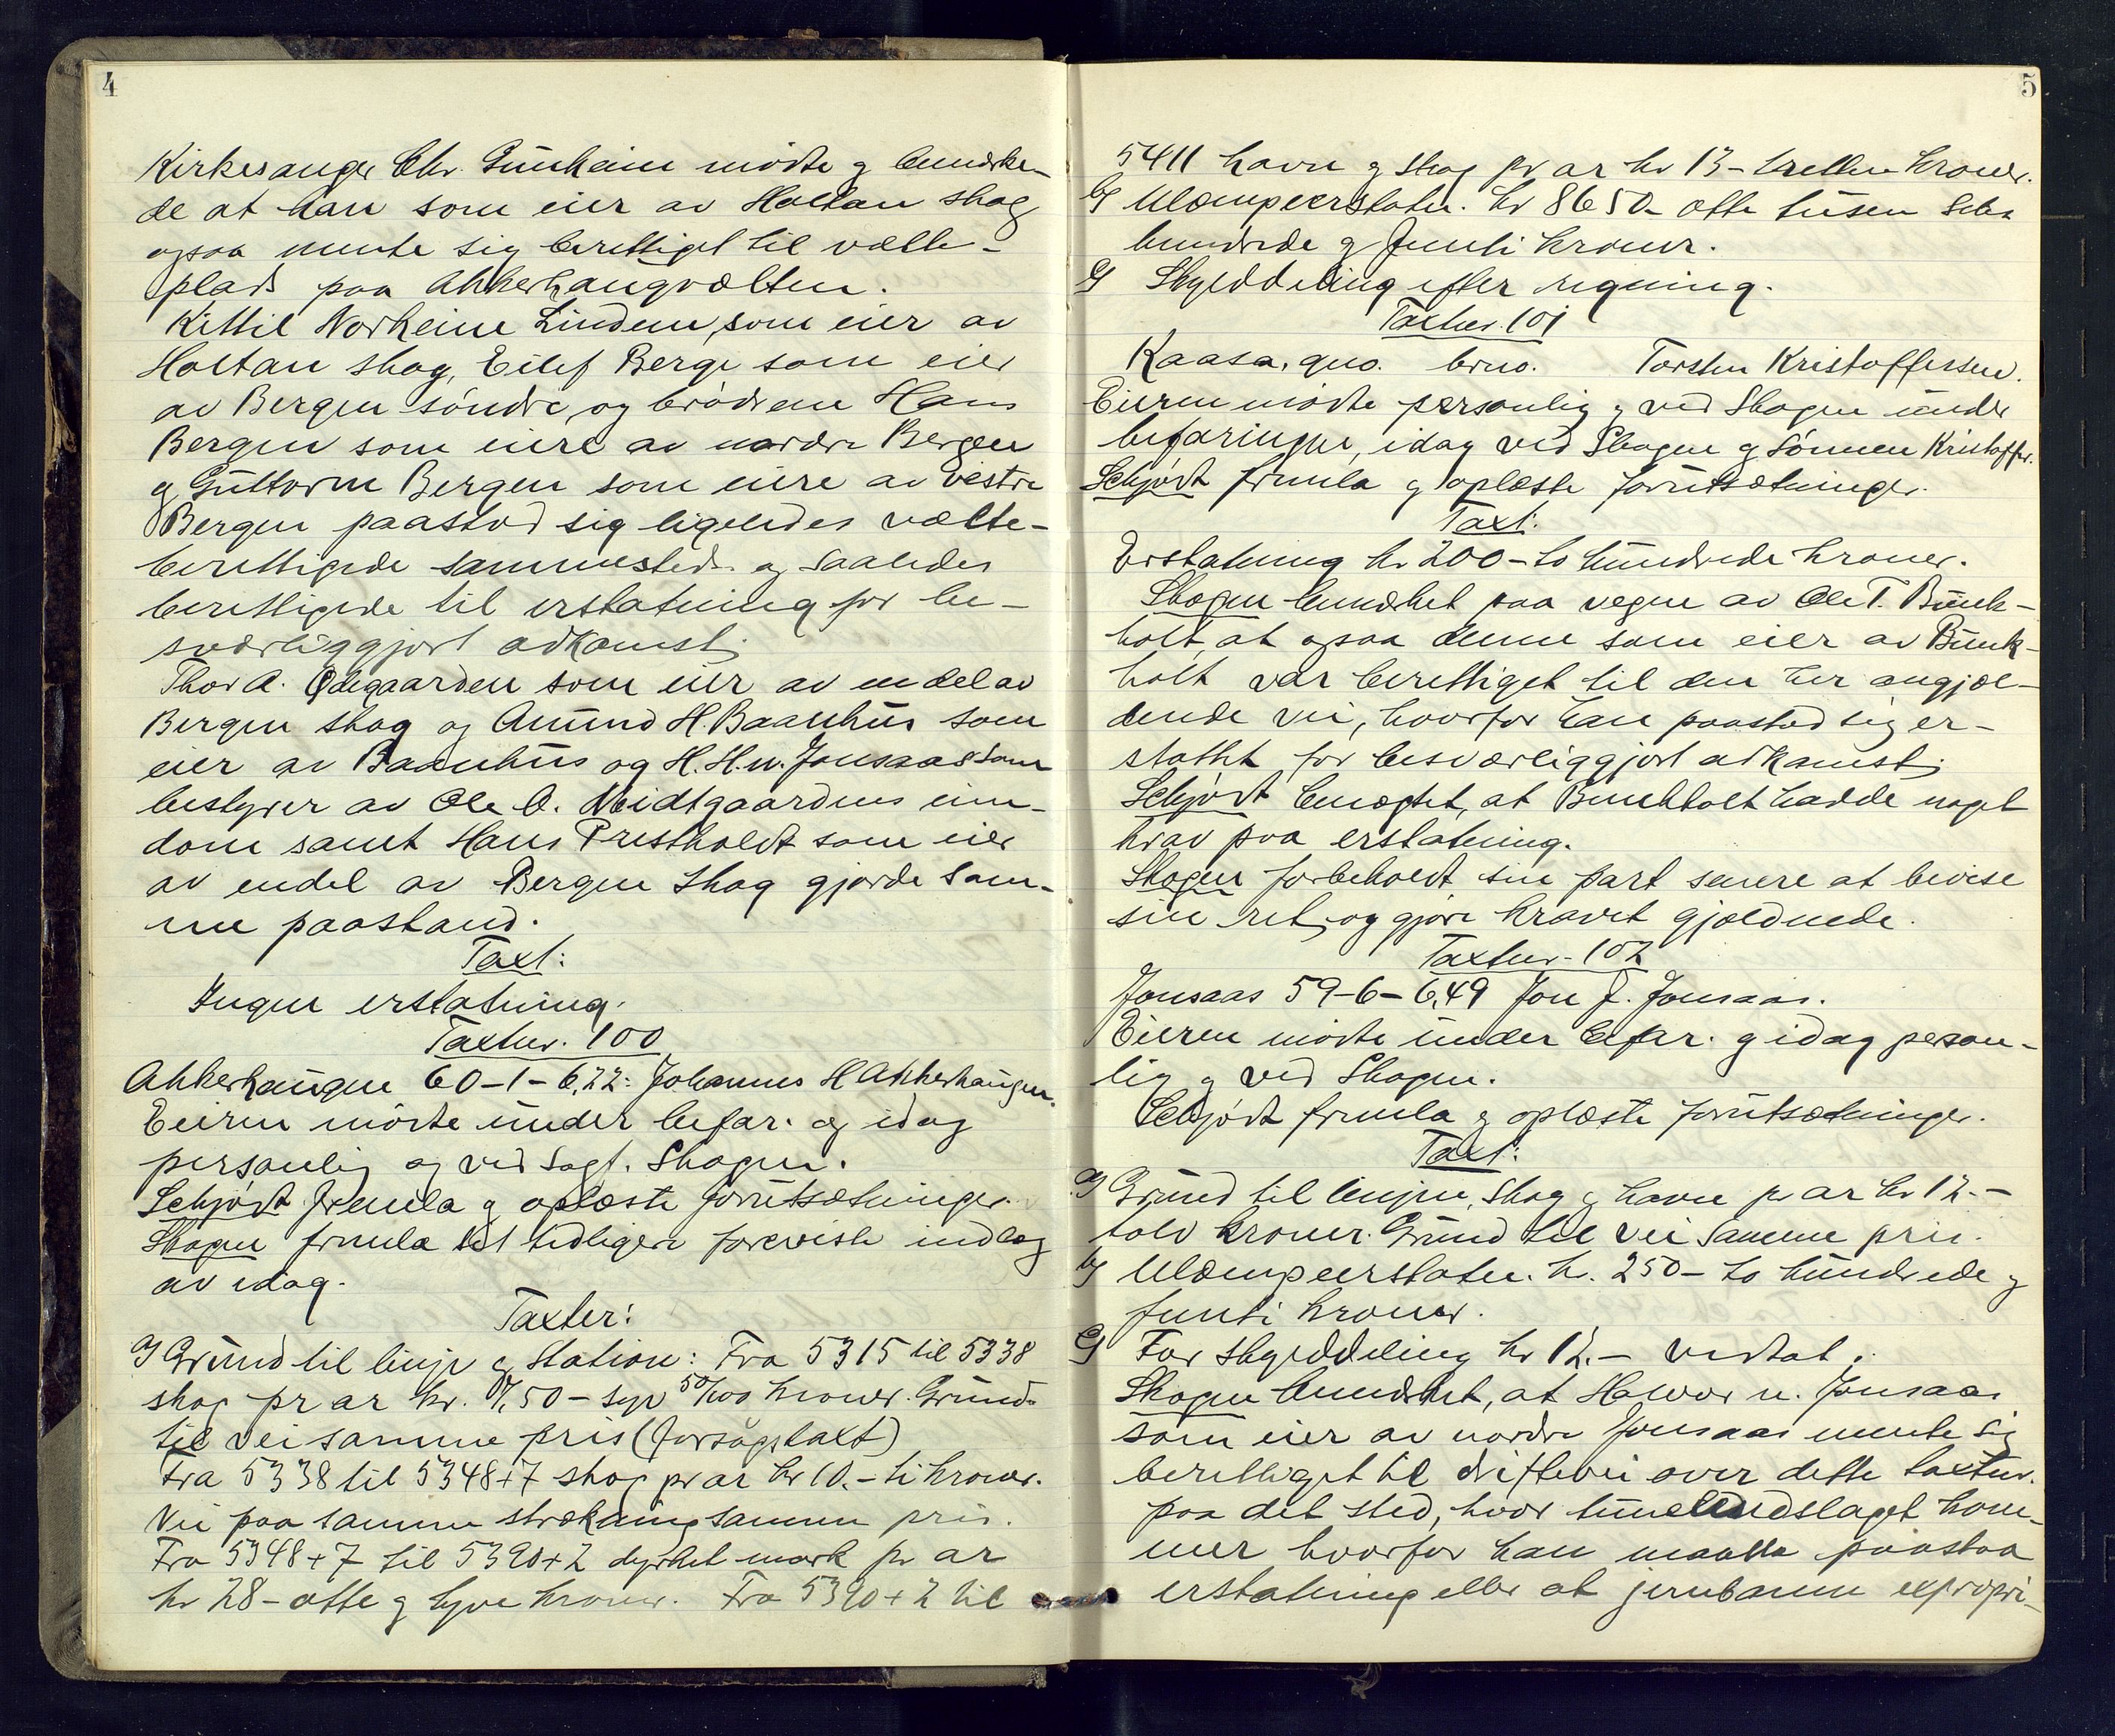 4
Kirkesanger Chr. Gunheim mødte og bemærke-
de at han som eier av Holtan skog
ogsaa mente sig berettiget til vælte-
plads paa Akkerhaugvælten.
Kittil Norheim Lindem, som eier av
Holtan skog, Eilef Berge som eier
av Bergen söndre, og brödrene Hans
Bergen som eiere av nordre Bergen
og Guttorm Bergen som eiere av vestre
Bergen paastod sig ligeledes vælte-
berettigede sammesteds og saaledes
berettigede til erstatning for be-
sværliggjort adkomst.
Thor A. Ødegaarden som eier av en del av
Bergen skog og Amund H. Baanhus som
eier av Baanhus og H. H. n. Jonsaas som
bestyrer av Ole O. Meidtgaardens eien-
dom samt Hans Prestholdt som eier
av endel av Bergen skog gjorde sam-
me paastand.
Taxt:
Ingen erstatning.
Taxtnr. 100
Akkerhaugen 60-1-6,22: Johannes H Akkerhaugen.
Eieren mödte under befar. og idag
personlig og ved sagf. Skogen.
Schjödt fremla og oplæste forutsætninger.
Skogen fremla sit tidligere foreviste indlæg
av idag.
Taxter:
a) Grund til linje og station: Fra 5315 til 5338
skog pr ar kr. 7,50 - syv 50/100 kroner. Grund
til vei samme pris (forsøgstaxt)
Fra 5338 til 5348+7 skog pr ar kr 10.- ti kroner.
Vei paa samme strækning samme pris.
Fra 5348+7 til 5390+2 dyrket mark pr ar
kr 28 - otte og tyve kroner. Fra 5390+2 til
5
5411 havn og skog pr ar kr 13 - tretten kroner.
b) Ulæmpeerstatn. kr 8650 - otte tusen seks
hundrede og femti kroner.
c) Skylddeling efter regning.
Taxtnr. 101
Kaasa, gno. brno. Torsten Kristoffersen.
Eieren mödte personlig og ved Skogen under
befaringen, idag ved Skogen og sönnen Kristoffer.
Schjödt fremla og oplæste forutsætninger.
Taxt.
Erstatning kr 200 - to hundrede kroner.
Skogen bemærket paa vegne av Ole T. Bunk-
holt, at ogsaa denne som eier av Bunk-
holt var berettiget til den her angjæl-
dende vei, hvorfor han paastod sig er-
stattet for besværliggjort adkomst.
Schjödt benegtet, at Bunkholt hadde noget
krav paa erstatning.
Skogen forbeholdt sin part senere at bevise
sin ret og gjøre kravet gjældnede.
Taxtnr. 102
Jonsaas 59-6-6,49 Jon J. Jonsaas.
Eieren mödte under befar. og idag person-
lig og ved Skogen.
Schjödt fremla og oplæste forutsætninger.
Taxt:
a) Grund til linjen, skog og havn pr ar kr 12.-
tolv kroner. Grund til vei samme pris.
b) Ulæmpeerstatn. kr. 250 - to hundrede og
femti kroner.
c) For skylddeling kr 12.- vedtat.
Skogen bemærket, at Halvor n. Jonsaas
som eier av nordre Jonsaas mente sig
berettiget til driftevei over dette taxtnr.
paa det sted, hvor tunelindslaget kom-
mer hvorfor han maatte paastaa
erstatning eller at jernbanen expropri-